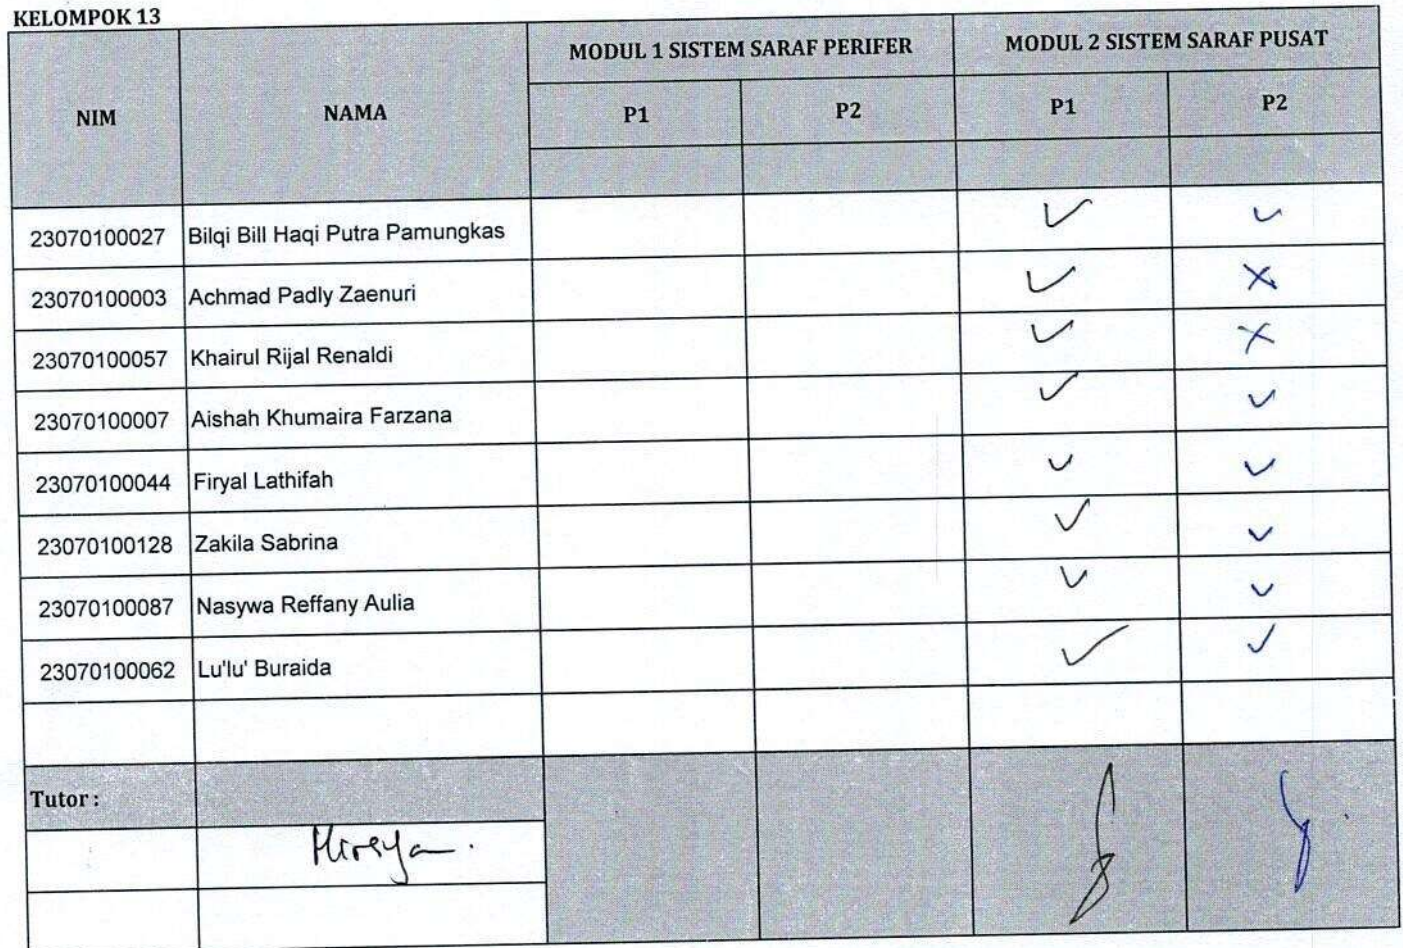 KELOMPOK 13
NIM NAMA MODUL 1 SISTEM SARAF PERIFER MODUL 2 SISTEM SARAF PUSAT
P1 P2 P1 P2
23070100027 Bilqi Bill Haqi Putra Pamungkas ✓ ✓
23070100003 Achmad Padly Zaenuri ✓ ✗
23070100057 Khairul Rijal Renaldi ✓ ✗
23070100007 Aishah Khumaira Farzana ✓ ✓
23070100044 Firyal Lathifah ✓ ✓
23070100128 Zakila Sabrina ✓ ✓
23070100087 Nasywa Reffany Aulia ✓ ✓
23070100062 Lu'lu' Buraida ✓ ✓
Tutor :